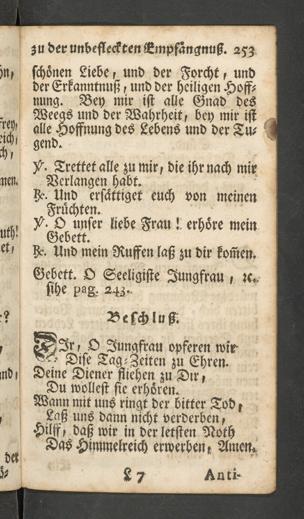 zu der unbefleckten Empfängnuß. 253
schönen Liebe, und der Forcht, und
der Erkanntnuß, und der heiligen Hoff-
nung. Bey mir ist alle Gnad des
Weegs und der Wahrheit, bey mir ist
alle Hoffnung des Lebens und der Tu-
gend.
℣. Trettet alle zu mir, die ihr nach mir
Verlangen habt.
℟. Und ersättiget euch von meinen
Früchten.
℣. O unser liebe Frau! erhöre mein
Gebett.
℟. Und mein Ruffen laß zu dir kom̃en.
Gebett. O Seeligiste Jungfrau, ꝛc.
sihe pag. 243.
Beschluß.
DIr, O Jungfrau opferen wir
Dise Tag-Zeiten zu Ehren.
Deine Diener fliehen zu Dir,
Du wollest sie erhören.
Wann mit uns ringt der bitter Tod,
Laß uns dann nicht verderben,
Hilff, daß wir in der letsten Noth
Das Himmelreich erwerben, Amen.
L 7 Anti-